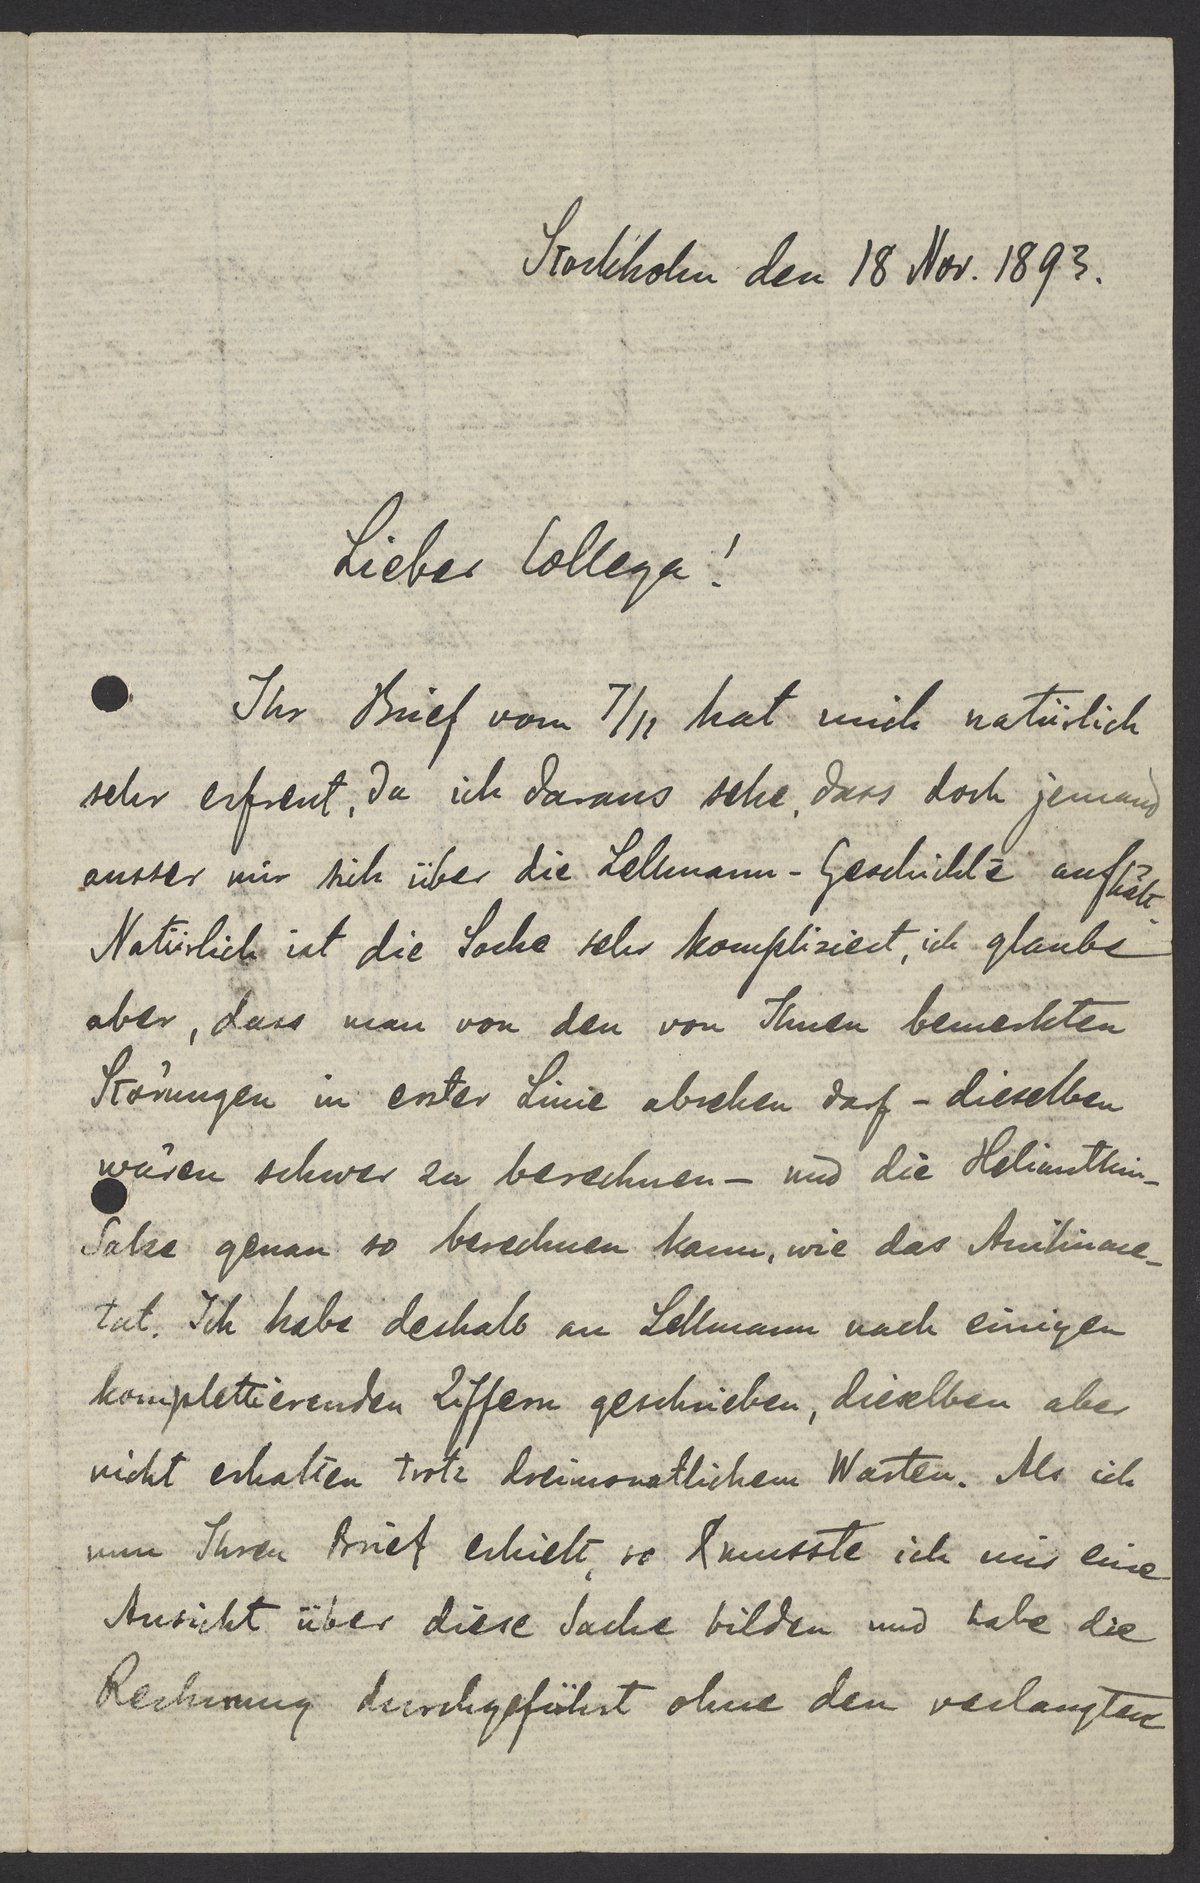 Stockholm den 18 Nov. 1893.
Lieber College!
Ihr Brief vom 7/11 hat mich natürlich
sehr erfreut, da ich daraus sehe, dass doch jemand
ausser mir sich über die Lellmann-Geschichte aufhält.
Natürlich ist die Sache sehr kompliziert, ich glaube
aber, dass man von den von Ihnen bemerkten
Störungen in erster Linie absehen darf – dieselben
wären schwer zu berechnen – und die Helianthin-
Salze genau so berechnen kann, wie das Anilinace-
tat. Ich habe deshalb an Lellmann nach einigen
komplettierenden Ziffern geschrieben, dieselben aber
nicht erhalten trotz dreimonatlichem Warten. Als ich
nun Ihren Brief erhielt, so musste ich mir eine
Ansicht über diese Sache bilden und habe die
Rechnung durchgeführt ohne den verlangten